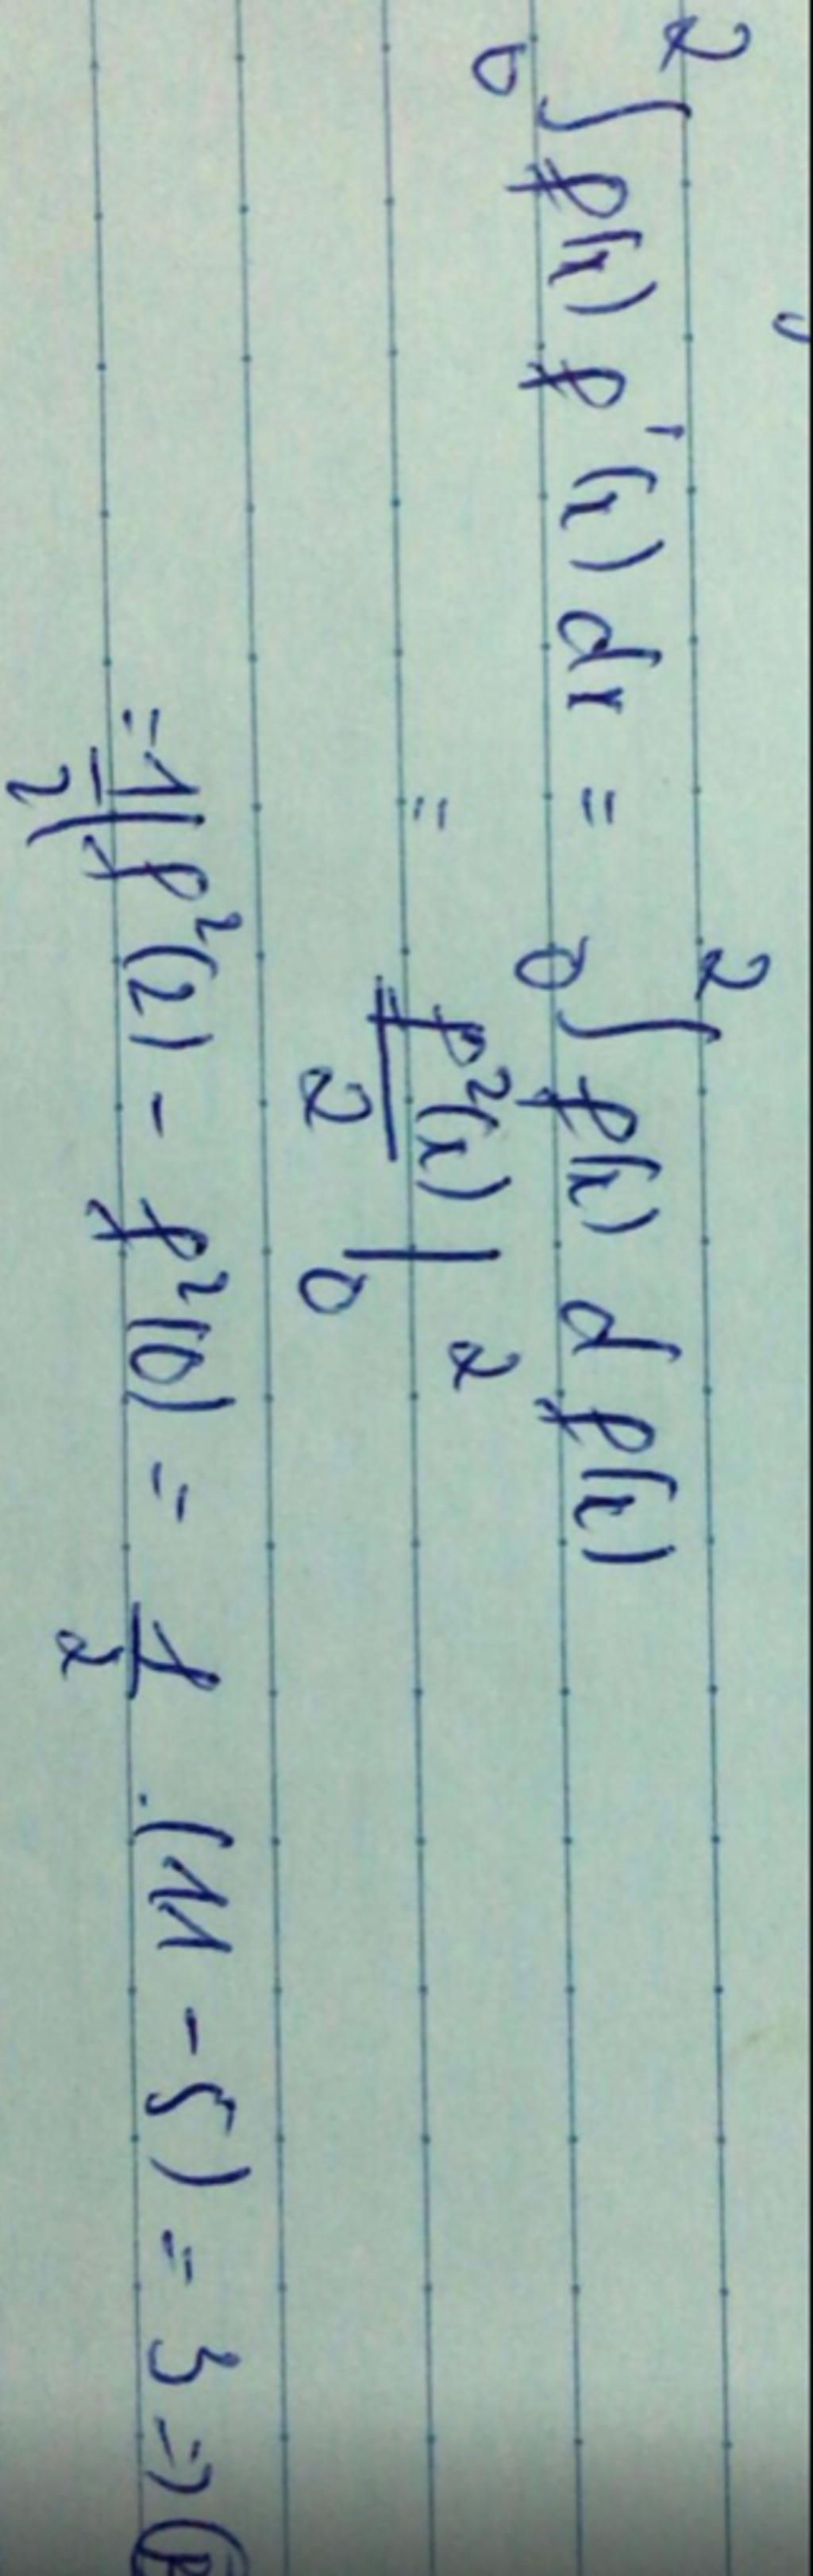 ∫₀² f(x) f'(x) dx = ∫₀² f(x) d f(x)
= f²(x)/2 |₀²
= 1/2 (f²(2) - f²(0) = 1/2 . (11 - 5) = 3 =>